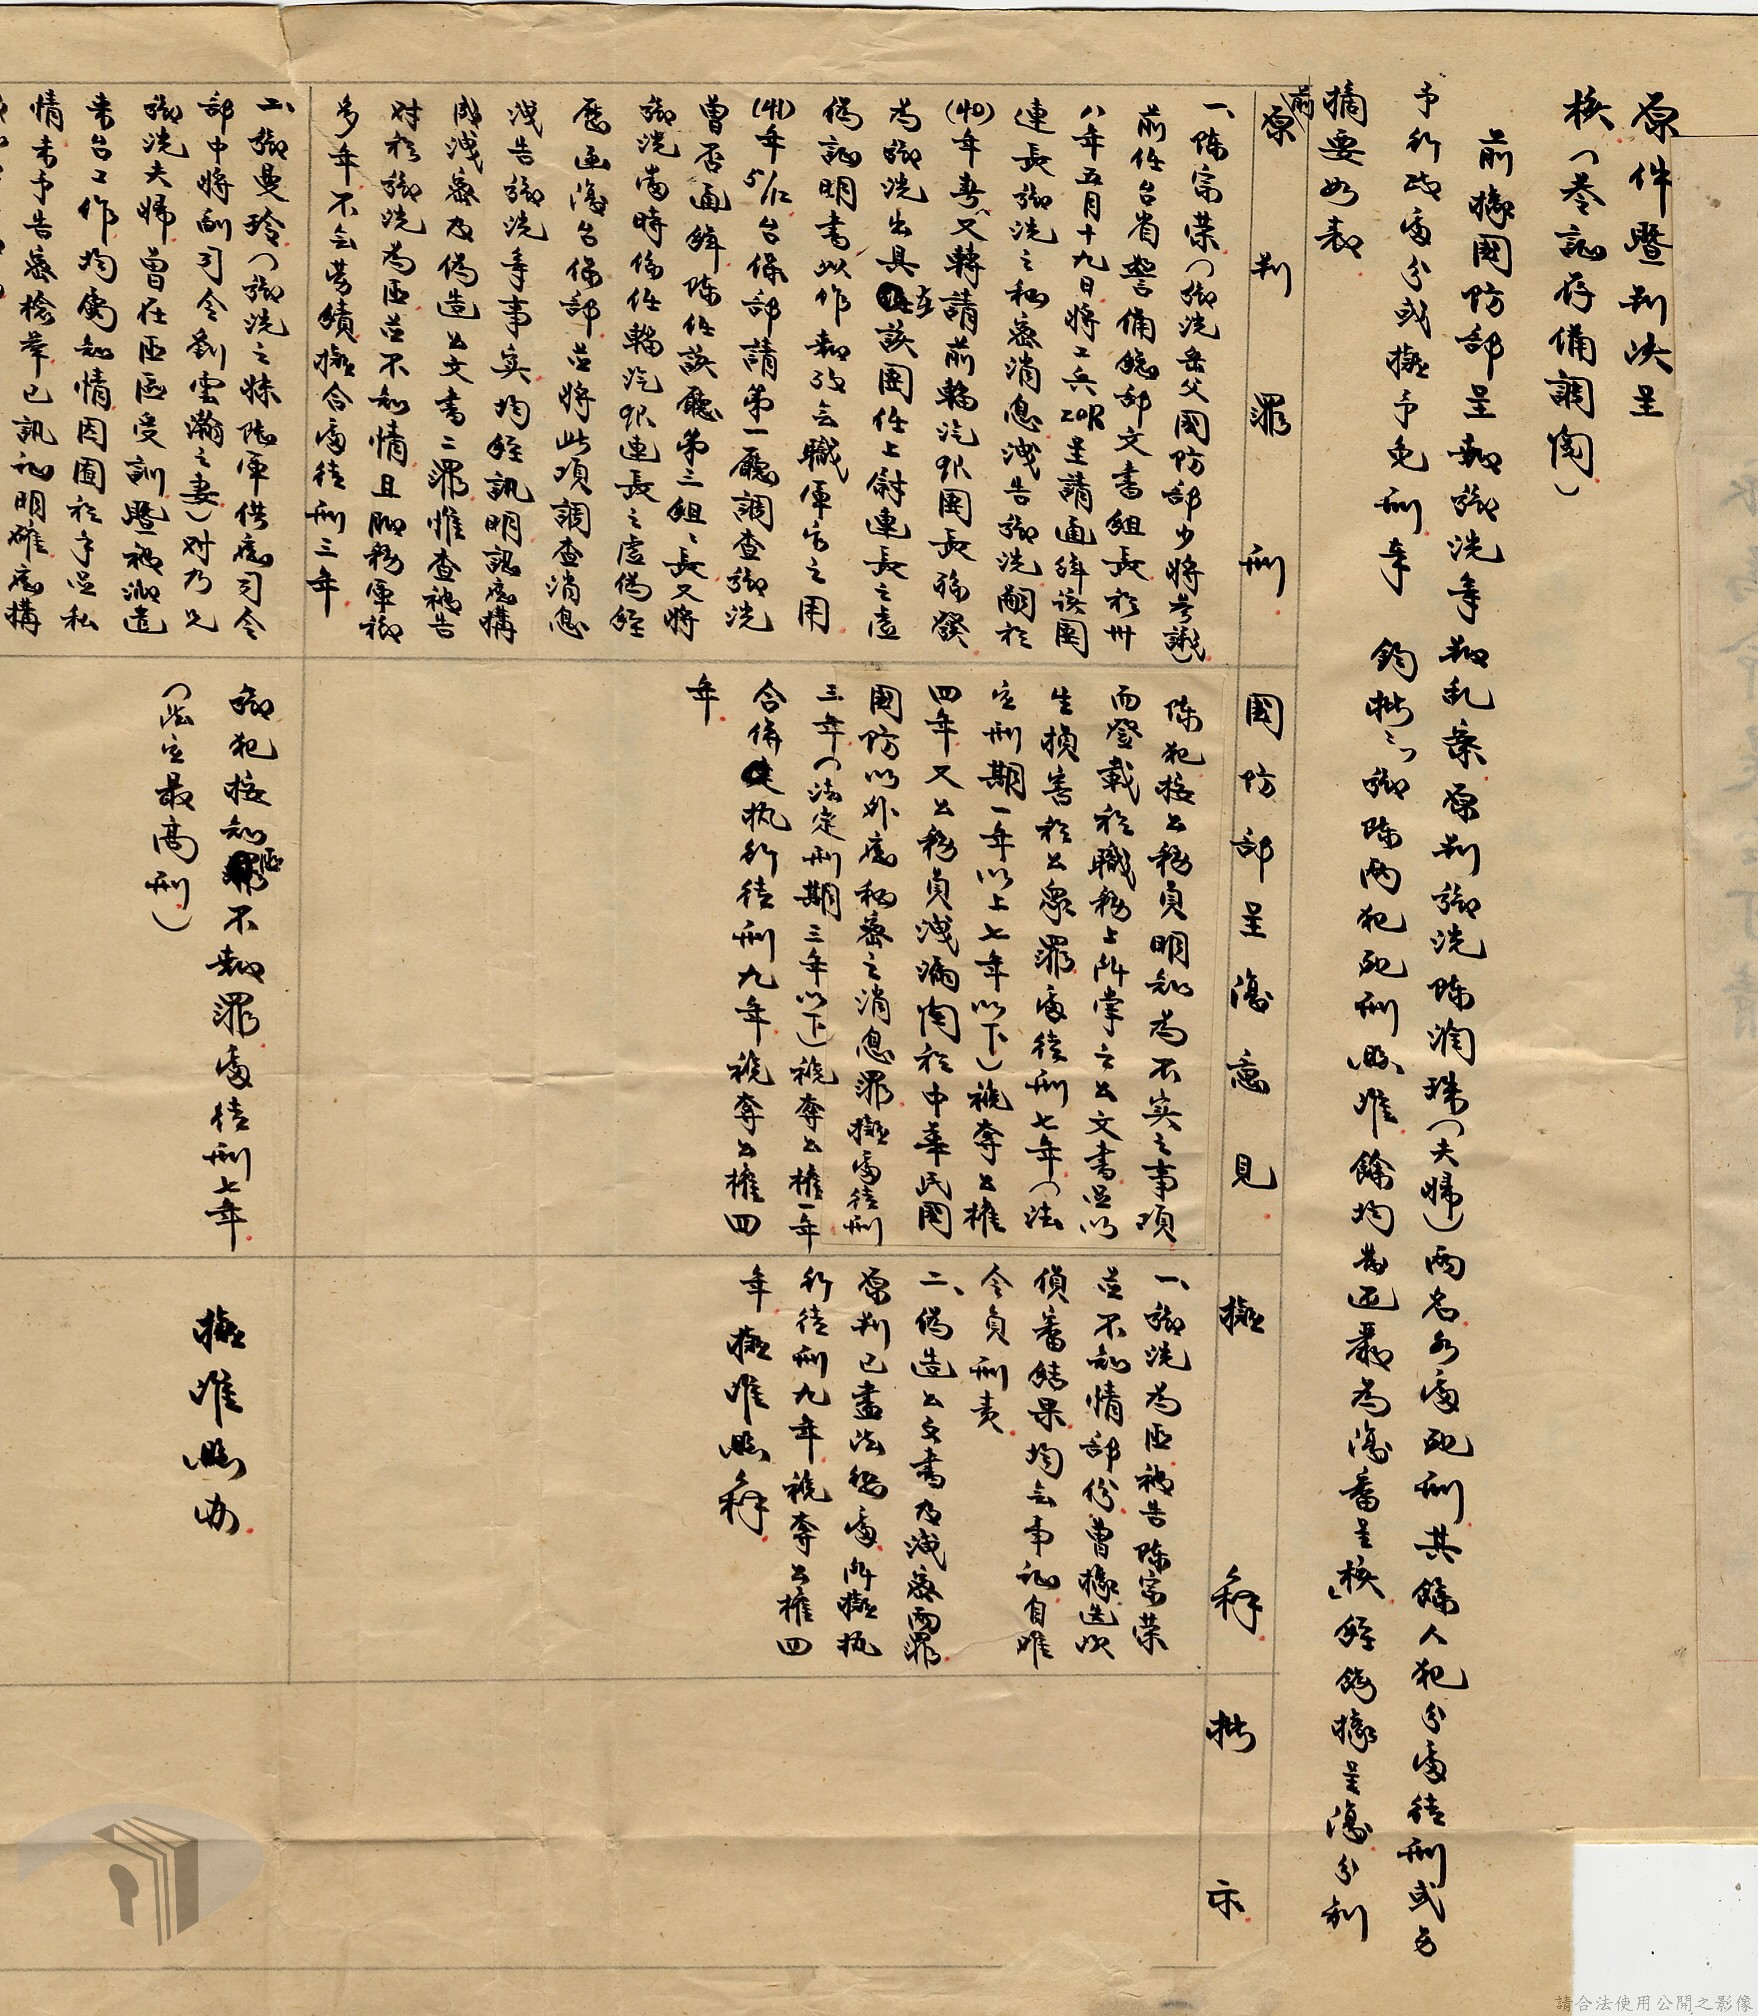 原件暨判決呈
核（卷證存備調閱）
前據國防部呈報鄒洗等叛乱案原判鄒洗陳潤珠（夫婦）兩名各處死刑其餘人犯分處徒刑或另
予行政處分或擬予免刑奉　鈞批「鄒陳兩犯死刑照准餘均發還嚴為復審呈核」經飭據呈復分別
摘要如表
原判罪刑
國防部呈復意見
擬辦
批示
前
一、陳宗荣（鄒洗岳父國防部少將參議）
前任台省警備總部文書組長於卅
八年五月十九日將工兵20R呈請通緝該團
連長鄒洗之秘密消息洩告鄒洗嗣於
(40)年春又轉請前輜汽R團長
為鄒洗出具在該團任上尉連長之虛
偽証明書以作報政会職軍官之用
(41)年5/12台保部請第一廳調查鄒洗
曾否通緝陳任該廳第三組組長又將
鄒洗當時係任輜汽R連長之虛偽經
歷函復台保部並將此項調查消息
洩告鄒洗等事实均經訊明認應構
成洩密及偽造公文書二罪惟查被告
对於鄒洗為匪並不知情且服務軍
多年不無勞績擬合處徒刑三年
陳犯按公務員明知為不实之事項
而登載於職務上所掌之公文書足以
生損害於公眾罪處徒刑七年（法
定刑期一年以上七年以下）褫奪公權
四年又公務員洩漏關於中華民國
國防以外應秘密之消息罪擬處徒刑
三年（法定刑期三年以下）褫奪公權一年
合併执行徒刑九年褫奪公權四
年
一、鄒洗為匪被告陳宗荣
並不知情部份曾據迭次
偵審結果均無事証自难
令負刑責
二、偽造公文書及洩密兩罪
原判已盡法從處所擬执
行徒刑九年褫奪公權四
年擬准照辦
二、鄒曼玲（鄒洗之妹陸軍供應司令
部中將副司令劉雲瀚之妻）对乃兄
鄒洗夫婦曾在匪區受訓暨被派遣
來台工作均屬知情因囿於手足私
情未予告密檢舉已訊証明確應構
鄒犯按知匪不報罪處徒刑七年
（法定最高刑）
擬准照办
請合法使用公開之影像